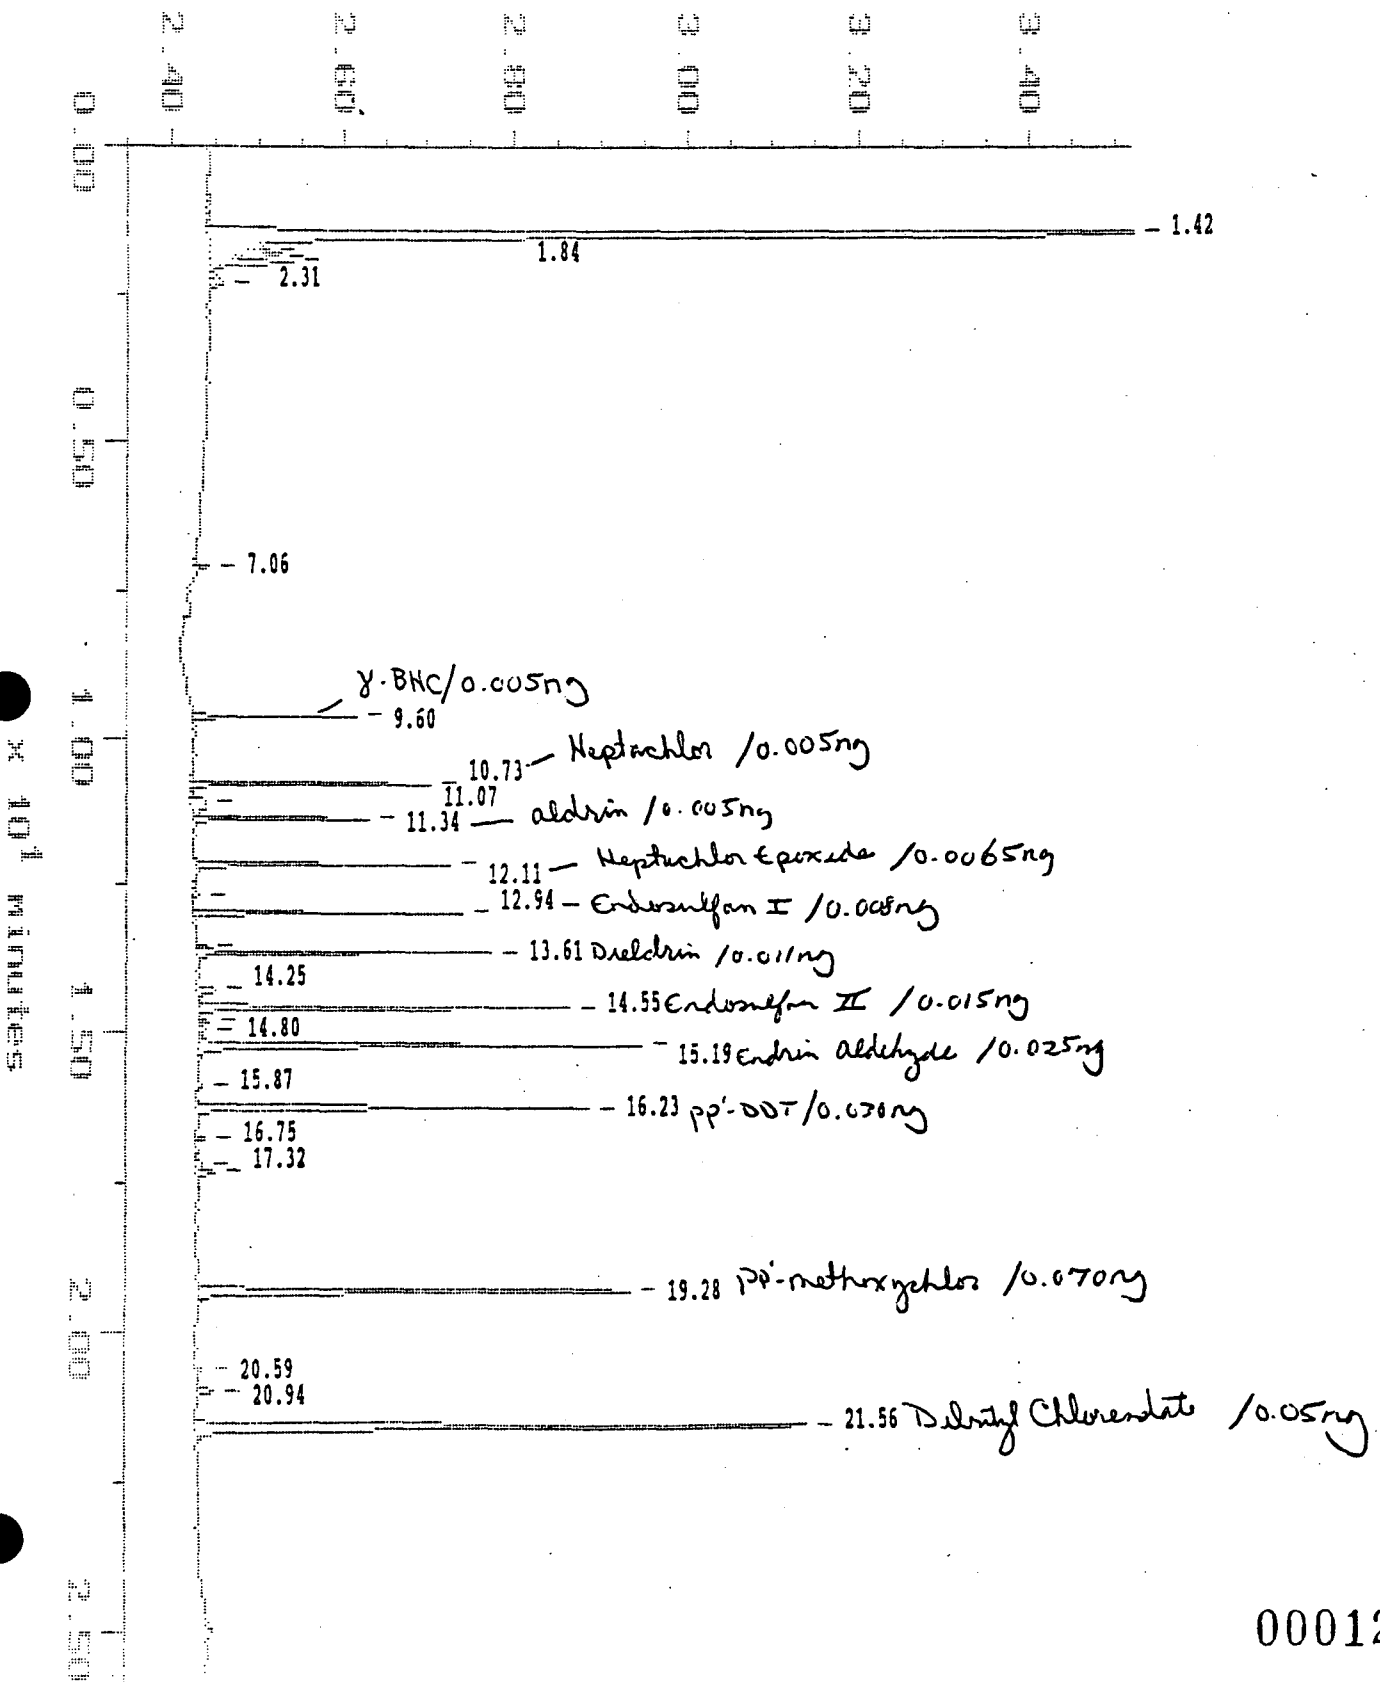 2.40 2.60 2.80 3.00 3.20 3.40
0.00
1.42
1.84
2.31
0.50
7.06
γ-BHC/0.005ng
9.60
1.00
10.73 Heptachlor /0.005ng
11.07
11.34 aldrin /0.005ng
12.11 Heptachlor Epoxide /0.0065ng
12.94 Endosulfan I /0.008ng
13.61 Dieldrin /0.011ng
14.25
14.55 Endosulfan II /0.015ng
1.50
14.80
15.19 Endrin aldehyde /0.025ng
15.87
16.23 pp'-DDT/0.030ng
16.75
17.32
19.28 pp'-methoxychlor /0.070ng
2.00
20.59
20.94
21.56 Dibutyl Chlorendate /0.05ng
2.50
x 10¹ minutes
00012